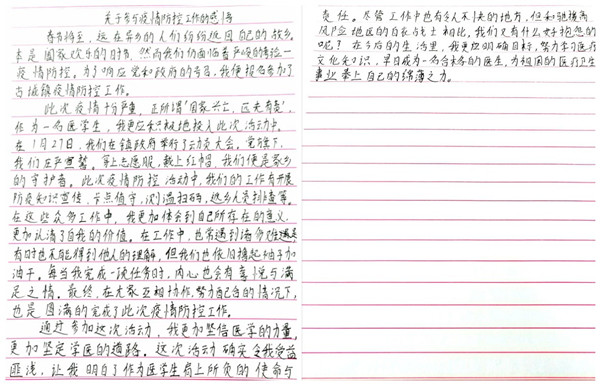 关于参与疫情防控工作的感悟
春节将至，远在异乡的人们纷纷返回自己的故乡。
本是阖家欢乐的日子，然而我们仍面临着严峻的考验—
疫情防控。为了响应党和政府的号召，我便报名参加了
古城镇疫情防控工作。
此次疫情十分严重，正所谓"国家兴亡，匹夫有责"，
作为一名医学生，我更应积极地投入此次活动中。
在1月27日，我们在镇政府举行了动员大会。党旗下，
我们庄严宣誓。穿上志愿服，戴上红帽，我们便是家乡
的守护者。此次疫情防控活动中，我们的工作有开展
防疫知识宣传，卡点值守，测温扫码，返乡人员排查等。
在这些众多工作中，我更加体会到自己所存在的意义
更加认清了自我的价值。在工作中，也常遇到诸多难题
有时也不能得到他人的理解，但我们也依旧撸起袖子加
油干。每当我完成一项任务时，内心也会有喜悦与满
足之情。最终，在大家互相协作，努力配合的情况下，
也是圆满的完成了此次疫情防控工作。
通过参加这次活动，我更加坚信医学的力量，
更加坚定学医的道路。这次活动确实令我受益
匪浅，让我明白了作为医学生肩上所负的使命与
责任。尽管工作中也有令人不快的地方，但和驰援高
风险地区的白衣战士相比，我们又有什么好抱怨的
呢？在今后的生活里，我更应明确目标，努力学习医疗
文化知识，早日成为一名合格的医生，为祖国的医疗卫生
事业奉上自己的绵薄之力。